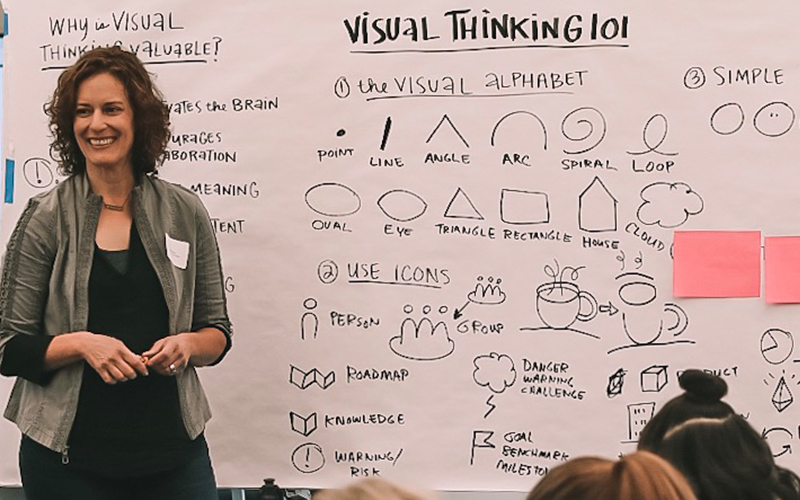 WHY is VISUAL
THINKING VALUABLE?
VATES the BRAIN
URAGES
ABORATION
MEANING
TENT
G
VISUAL THINKING 101
① the VISUAL ALPHABET
POINT LINE ANGLE ARC SPIRAL LOOP
OVAL EYE TRIANGLE RECTANGLE HOUSE CLOUD
② USE ICONS
PERSON GROUP
ROADMAP
KNOWLEDGE
! WARNING/
RISK
DANGER
WARNING
CHALLENGE
GOAL
BENCHMARK
MILESTO
③ SIMPLE
!